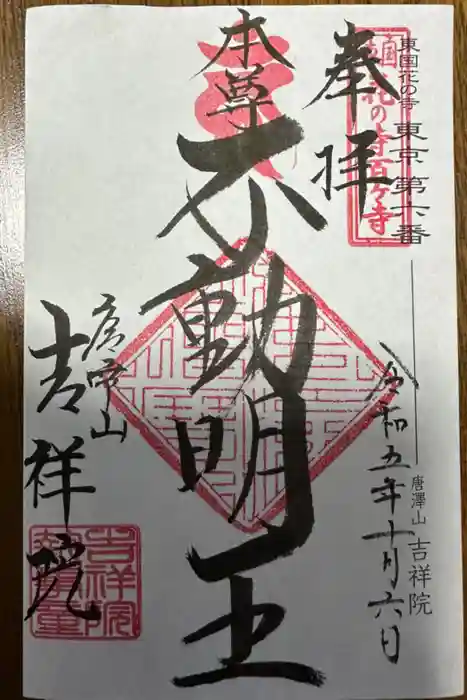 東国花の寺 東京 第六番
唐澤山 吉祥院
東国花の寺百ヶ寺
奉拝
令和五年十月六日
本尊
不動明王
唐澤山
吉祥院
吉祥院